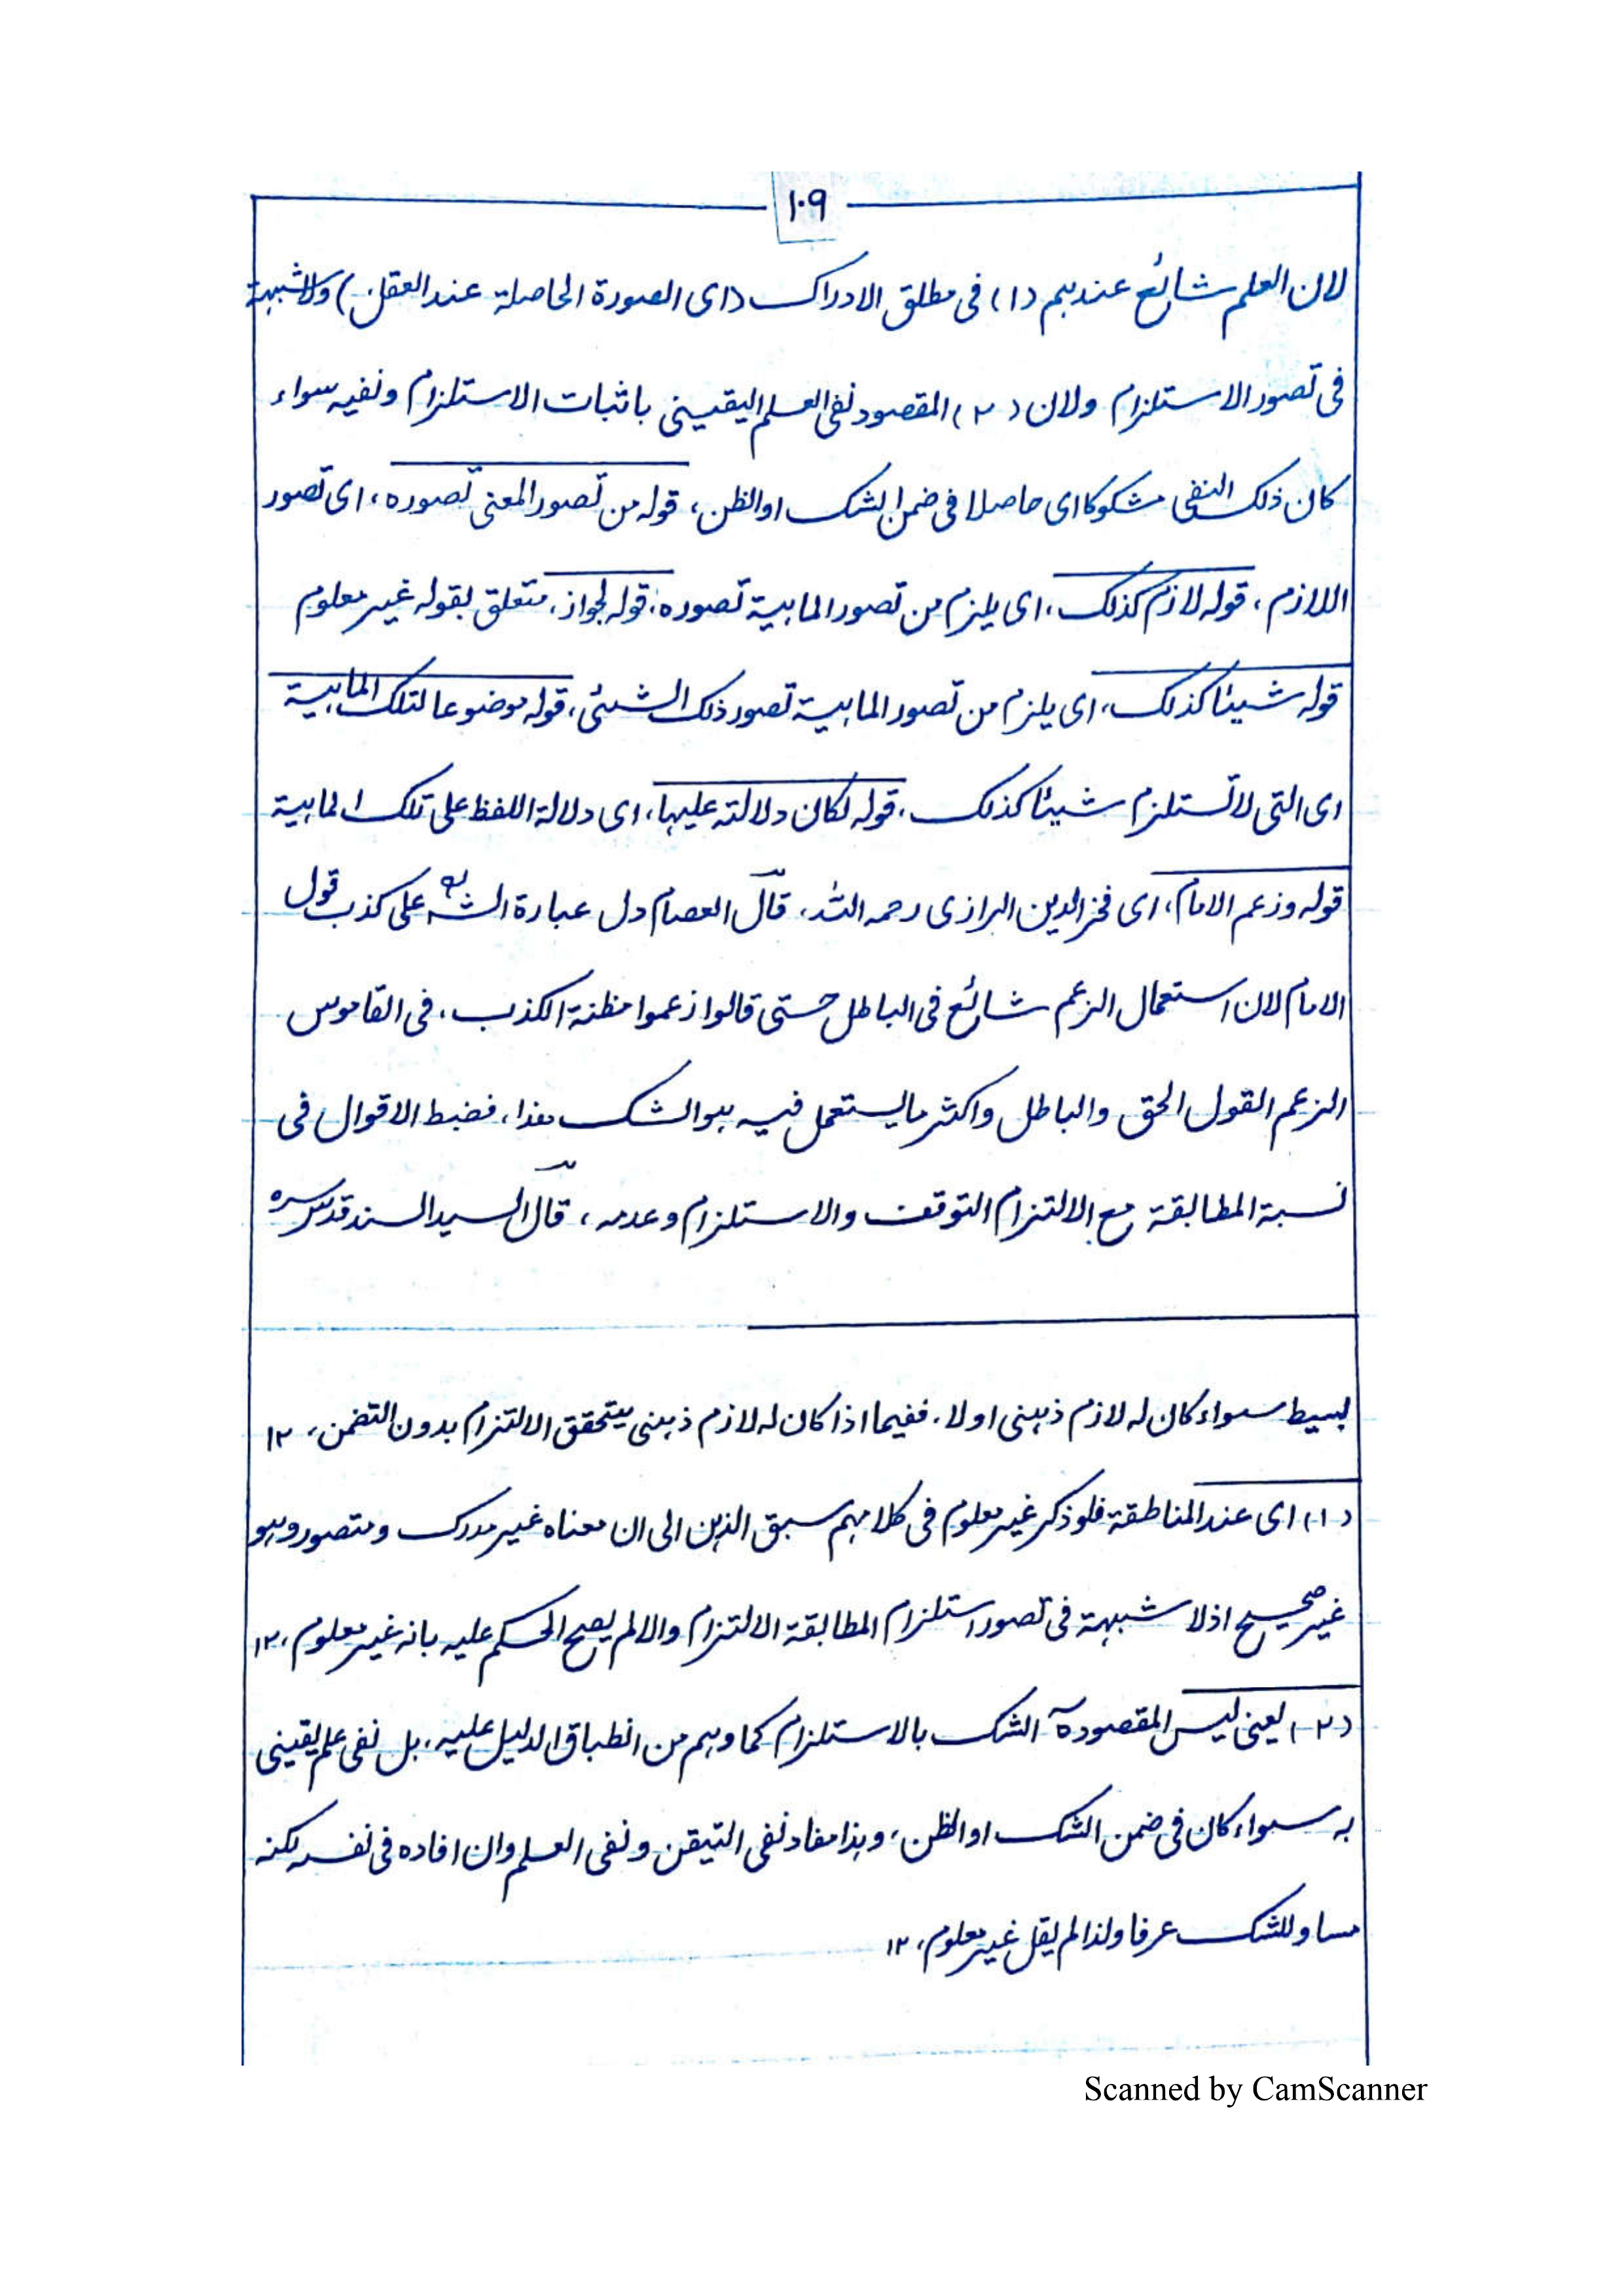 ١٠٩
لان العلم شائع عندهم (١) فى مطلق الادراك (اى الصورة الحاصلة عند العقل) ولا شبهة
فى تصور الاستلزام ولان (٢) المقصود نفى العلم اليقينى باثبات الاستلزام ونفيه سواء
كان ذلك النفى مشكوكا اى حاصلا فى ضمن الشك او الظن، قوله من تصور المعنى تصوره، اى تصور
اللازم، قوله لازم كذلك، اى يلزم من تصور الماهية تصوره، قوله لجواز، متعلق بقوله غير معلوم
قوله شيئا كذلك، اى يلزم من تصور الماهية تصور ذلك الشئى، قوله موضوعا لتلك الماهية
اى التى لا تستلزم شيئا كذلك، قوله لكان دلالته عليها، اى دلالة اللفظ على تلك الماهية
قوله وزعم الامام، اى فخر الدين الرازى رحمه الله، قال العصام دل عبارة الشه على كذب قول
الامام لان استعمال الزعم شائع فى الباطل حتى قالوا زعموا مظنة الكذب، فى القاموس
الزعم القول الحق والباطل واكثر ما يستعمل فيه هو الشك هذا، فضبط الاقوال فى
نسبة المطابقة مع الالتزام التوقف والاستلزام وعدمه، قال السيد السند قدس سره
بسيط سواء كان له لازم ذهنى اولا، ففيما اذا كان له لازم ذهنى يتحقق الالتزام بدون التضمن، ١٢
(١) اى عند المناطقة فلو ذكر غير معلوم فى كلامهم سبق الذهن الى ان معناه غير مدرك ومتصور وهو
غير صحيح اذلا شبهة فى تصور استلزام المطابقة الالتزام والا لم يصح الحكم عليه بانه غير معلوم، ١٢
(٢) يعنى ليس المقصود الشك بالاستلزام كما وهم من انطباق الدليل عليه، بل نفى علم يقينى
به سواء كان فى ضمن الشك او الظن، وهذا مفاد نفى التيقن ونفى العلم وان افاده فى نفسه لكنه
مساو للشك عرفا ولذا لم يقل غير معلوم، ١٢
Scanned by CamScanner